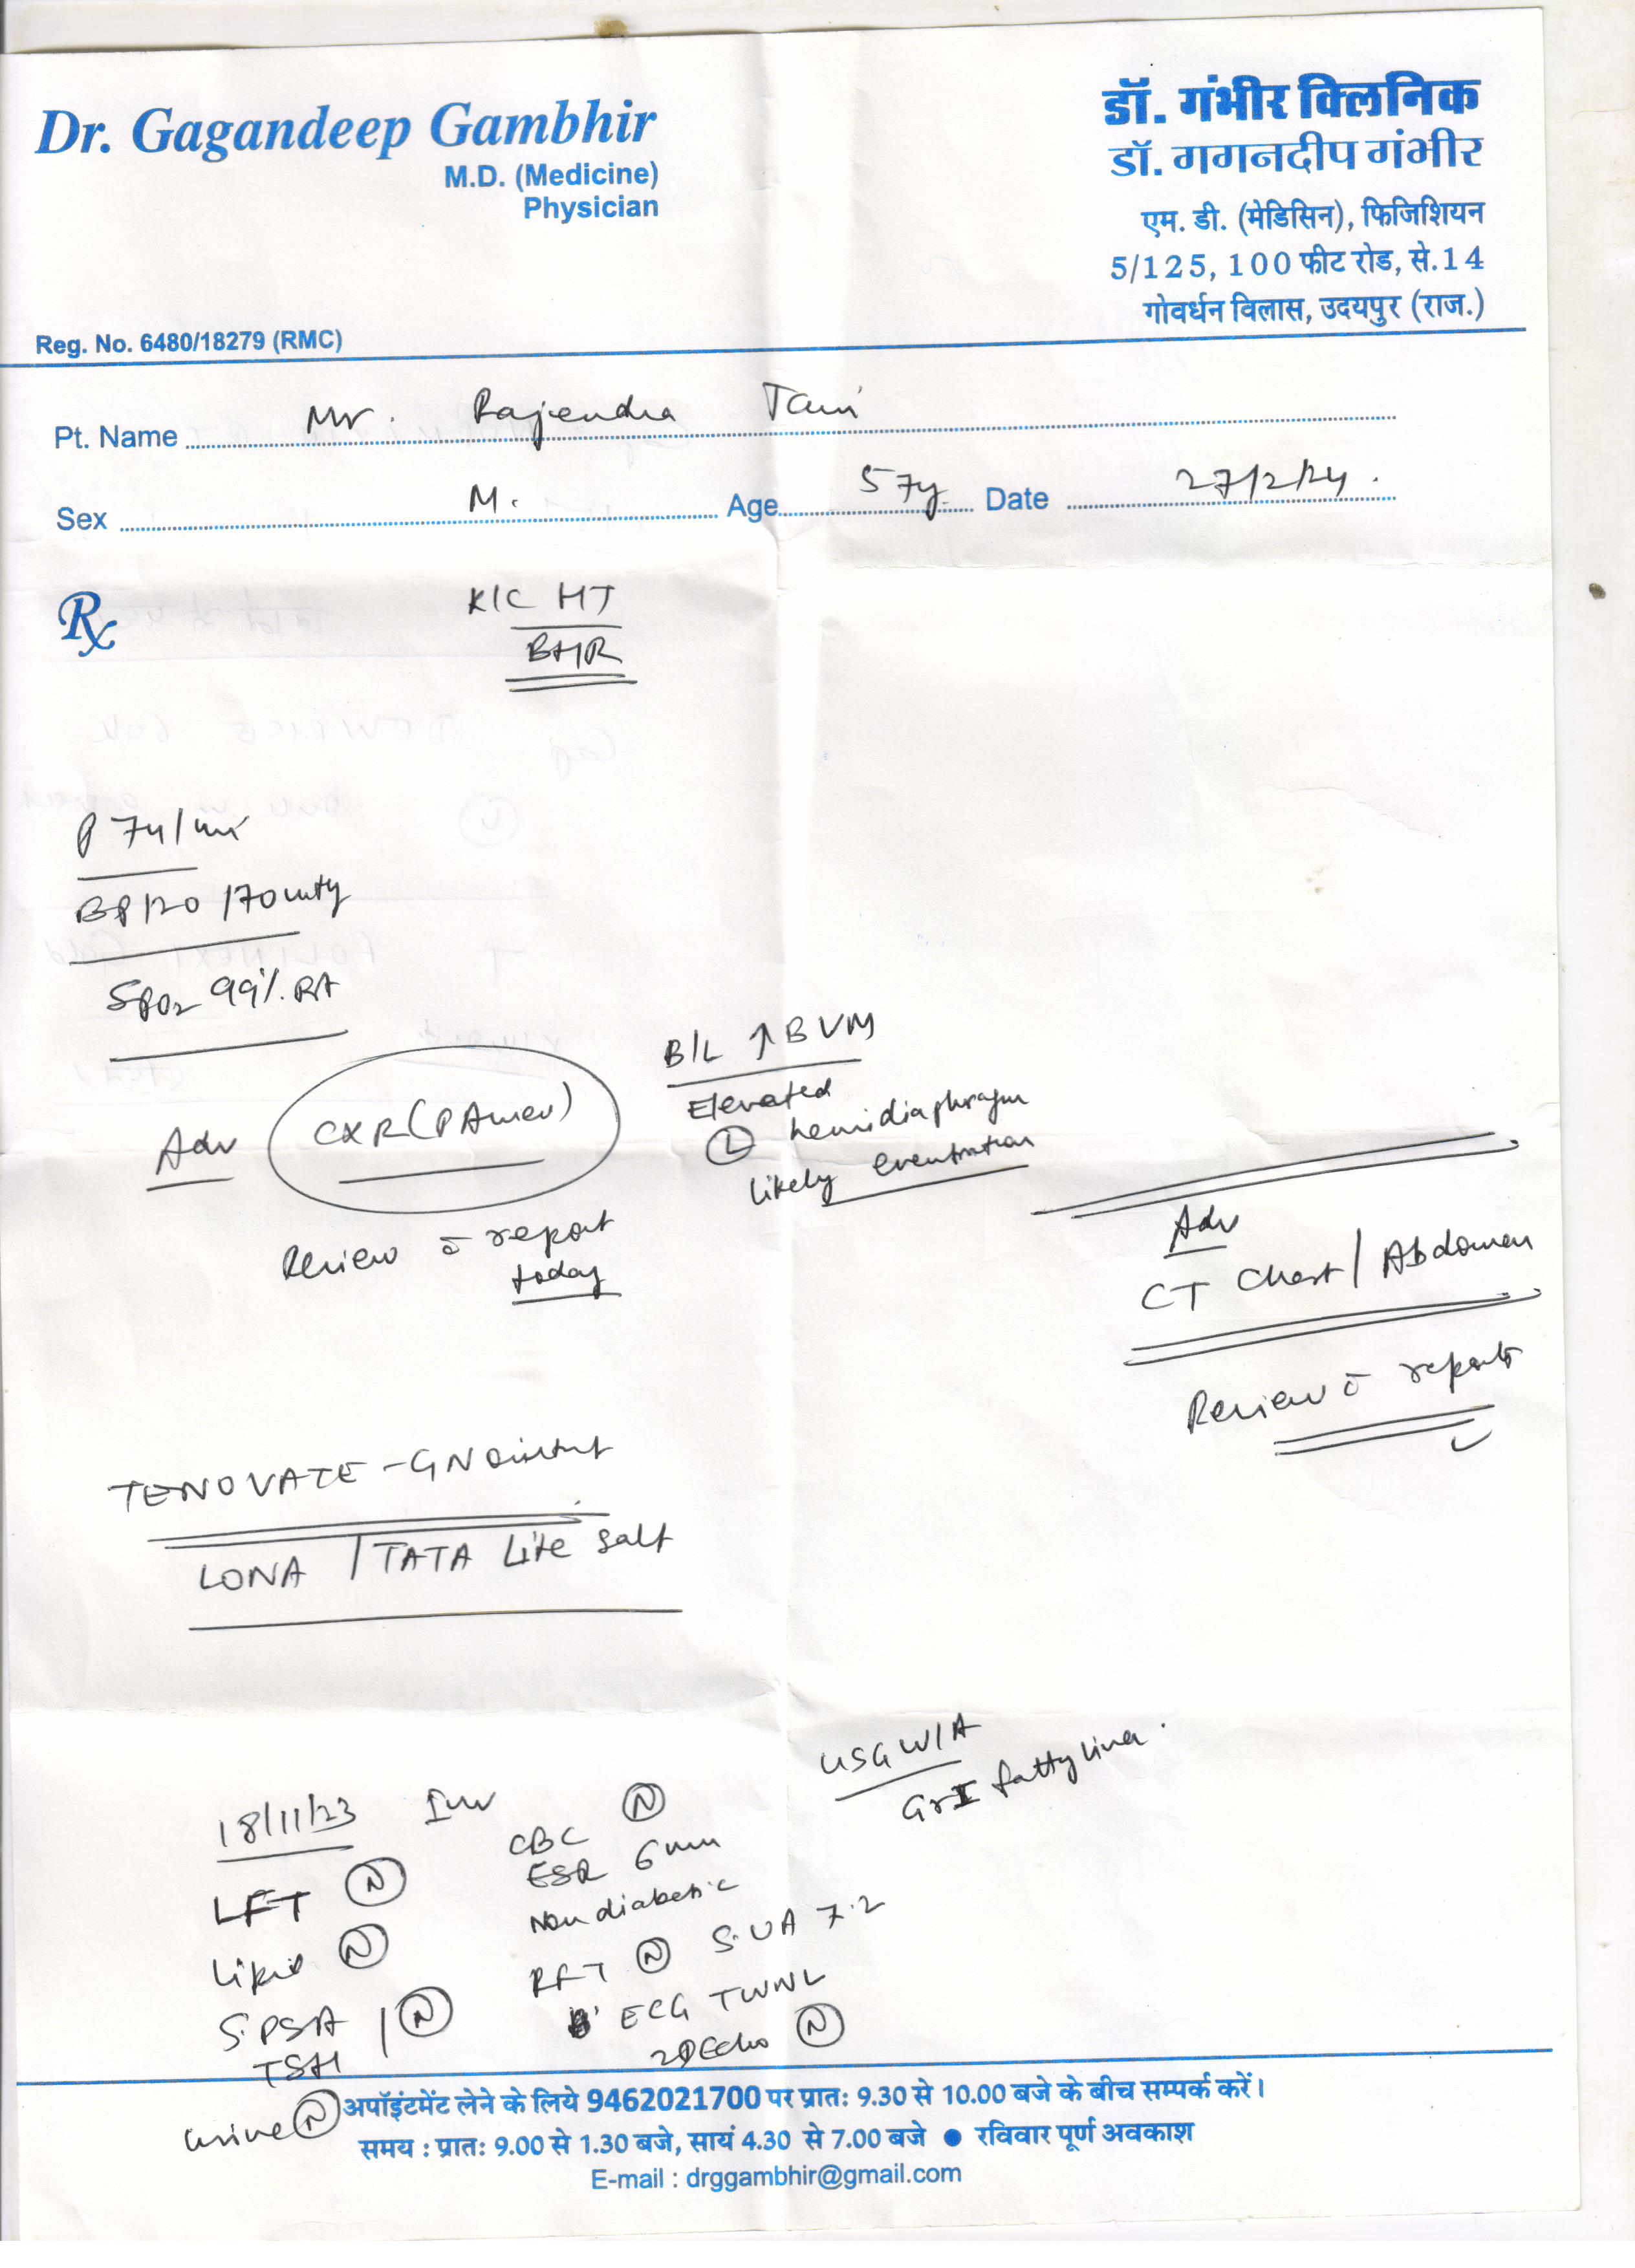 Dr. Gagandeep Gambhir
M.D. (Medicine)
Physician
Reg. No. 6480/18279 (RMC)
डॉ. गंभीर क्लिनिक
डॉ. गगनदीप गंभीर
एम. डी. (मेडिसिन), फिजिशियन
5/125, 100 फीट रोड, से.14
गोवर्धन विलास, उदयपुर (राज.)
Pt. Name Mr. Rajendra
Sex M. Age 57y Date 27/2/24.
Rx
K/C HT
BHR
P 74/mi
BP 120/70 mmHg
SPO2 99%. RA
Adv CXR (PA view)
Review c̄ report
today
B/L ↑ BVM
Elevated
(L) hemidiaphragm
likely eventration
Adv
CT Chest / Abdomen
Review c̄ reports
TENOVATE - GN ointmt
LONA / TATA Lite Salt
USG W/A
Gr I fatty liver.
18/11/23 Inv
LFT (N)
Lipid (N)
S. PSA / (N)
TSH
urine (N)
CBC (N)
ESR 6 mm
Non diabetic
RFT (N) S. UA 7.2
ECG TWNL
2D Echo (N)
अपॉइंटमेंट लेने के लिये 9462021700 पर प्रातः 9.30 से 10.00 बजे के बीच सम्पर्क करें।
समय : प्रातः 9.00 से 1.30 बजे, सायं 4.30 से 7.00 बजे ● रविवार पूर्ण अवकाश
E-mail : drggambhir@gmail.com